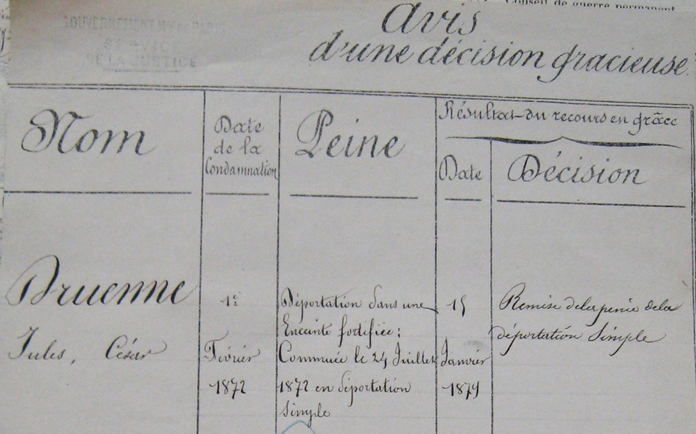 Conseil de guerre permanent
GOUVERNEMENT Mre DE PARIS
SERVICE
DE LA JUSTICE
Avis
d'une décision gracieuse.
Nom
Date
de la
Condamnation
Peine
Résultat du recours en grâce
Date
Décision
Druenne
Jules, César
1er
Février
1872
Déportation dans une
Enceinte fortifiée;
Commuée le 24 Juillet
1872 en déportation
simple
15
Janvier
1879
Remise de la peine de la
déportation simple